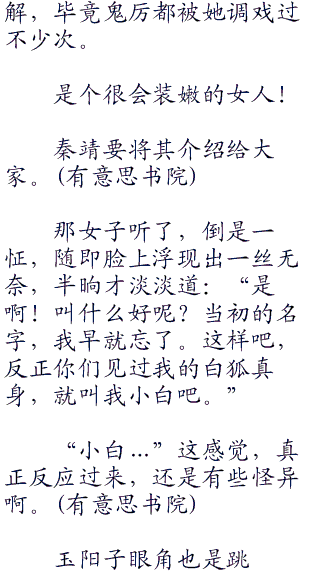 解，毕竟鬼厉都被她调戏过
不少次。
是个很会装嫩的女人！
秦靖要将其介绍给大
家。(有意思书院)
那女子听了，倒是一
怔，随即脸上浮现出一丝无
奈，半晌才淡淡道：“是
啊！叫什么好呢？当初的名
字，我早就忘了。这样吧，
反正你们见过我的白狐真
身，就叫我小白吧。”
“小白…”这感觉，真
正反应过来，还是有些怪异
啊。(有意思书院)
玉阳子眼角也是跳